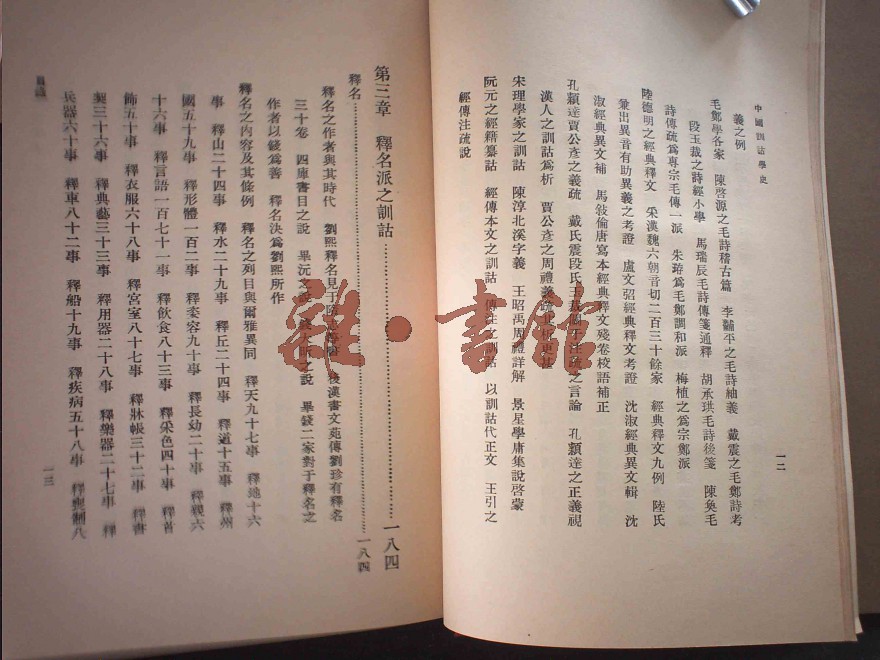 中國訓詁學史
一二
義之例
毛鄭學各家 陳啓源之毛詩稽古篇 李黼平之毛詩紬義 戴震之毛鄭詩考
段玉裁之詩經小學 馬瑞辰毛詩傳箋通釋 胡承珙毛詩後箋 陳奐毛
詩傳疏爲專宗毛傳一派 朱珔爲毛鄭調和派 梅植之爲宗鄭派
陸德明之經典釋文 采漢魏六朝音切二百三十餘家 經典釋文九例 陸氏
兼出異音有助異義之考證 盧文弨經典釋文考證 沈淑經典異文輯 沈
淑經典異文補 馬敍倫唐寫本經典釋文殘卷校語補正
孔穎達賈公彥之義疏 戴氏震段氏玉裁對于注疏之言論 孔穎達之正義視
漢人之訓詁爲析 賈公彥之周禮義疏比析更甚
宋理學家之訓詁 陳淳北溪字義 王昭禹周禮詳解 景星學庸集說啓蒙
阮元之經籍纂詁 經傳本文之訓詁 傳注之訓詁 以訓詁代正文 王引之
經傳注疏說
第三章 釋名派之訓詁 一八四
釋名 一八四
釋名之作者與其時代 劉熙釋名見于 後漢書文苑傳劉珍有釋名
三十卷 四庫書目之說 畢沅之說 錢大昕之說 畢錢二家對于釋名之
作者以錢爲善 釋名決爲劉熙所作
釋名之內容及其條例 釋名之列目與爾雅異同 釋天九十七事 釋地十六
事 釋山二十四事 釋水二十九事 釋丘二十四事 釋道十五事 釋州
國五十九事 釋形體一百二事 釋姿容九十事 釋長幼二十事 釋親六
十六事 釋言語一百七十一事 釋飲食八十三事 釋采色四十事 釋首
飾五十事 釋衣服六十八事 釋宮室八十七事 釋牀帳三十二事 釋書
契三十六事 釋典藝三十三事 釋用器二十八事 釋樂器二十七事 釋
兵器六十事 釋車八十二事 釋船十九事 釋疾病五十八事 釋喪制八
目錄
一三
雜·書館